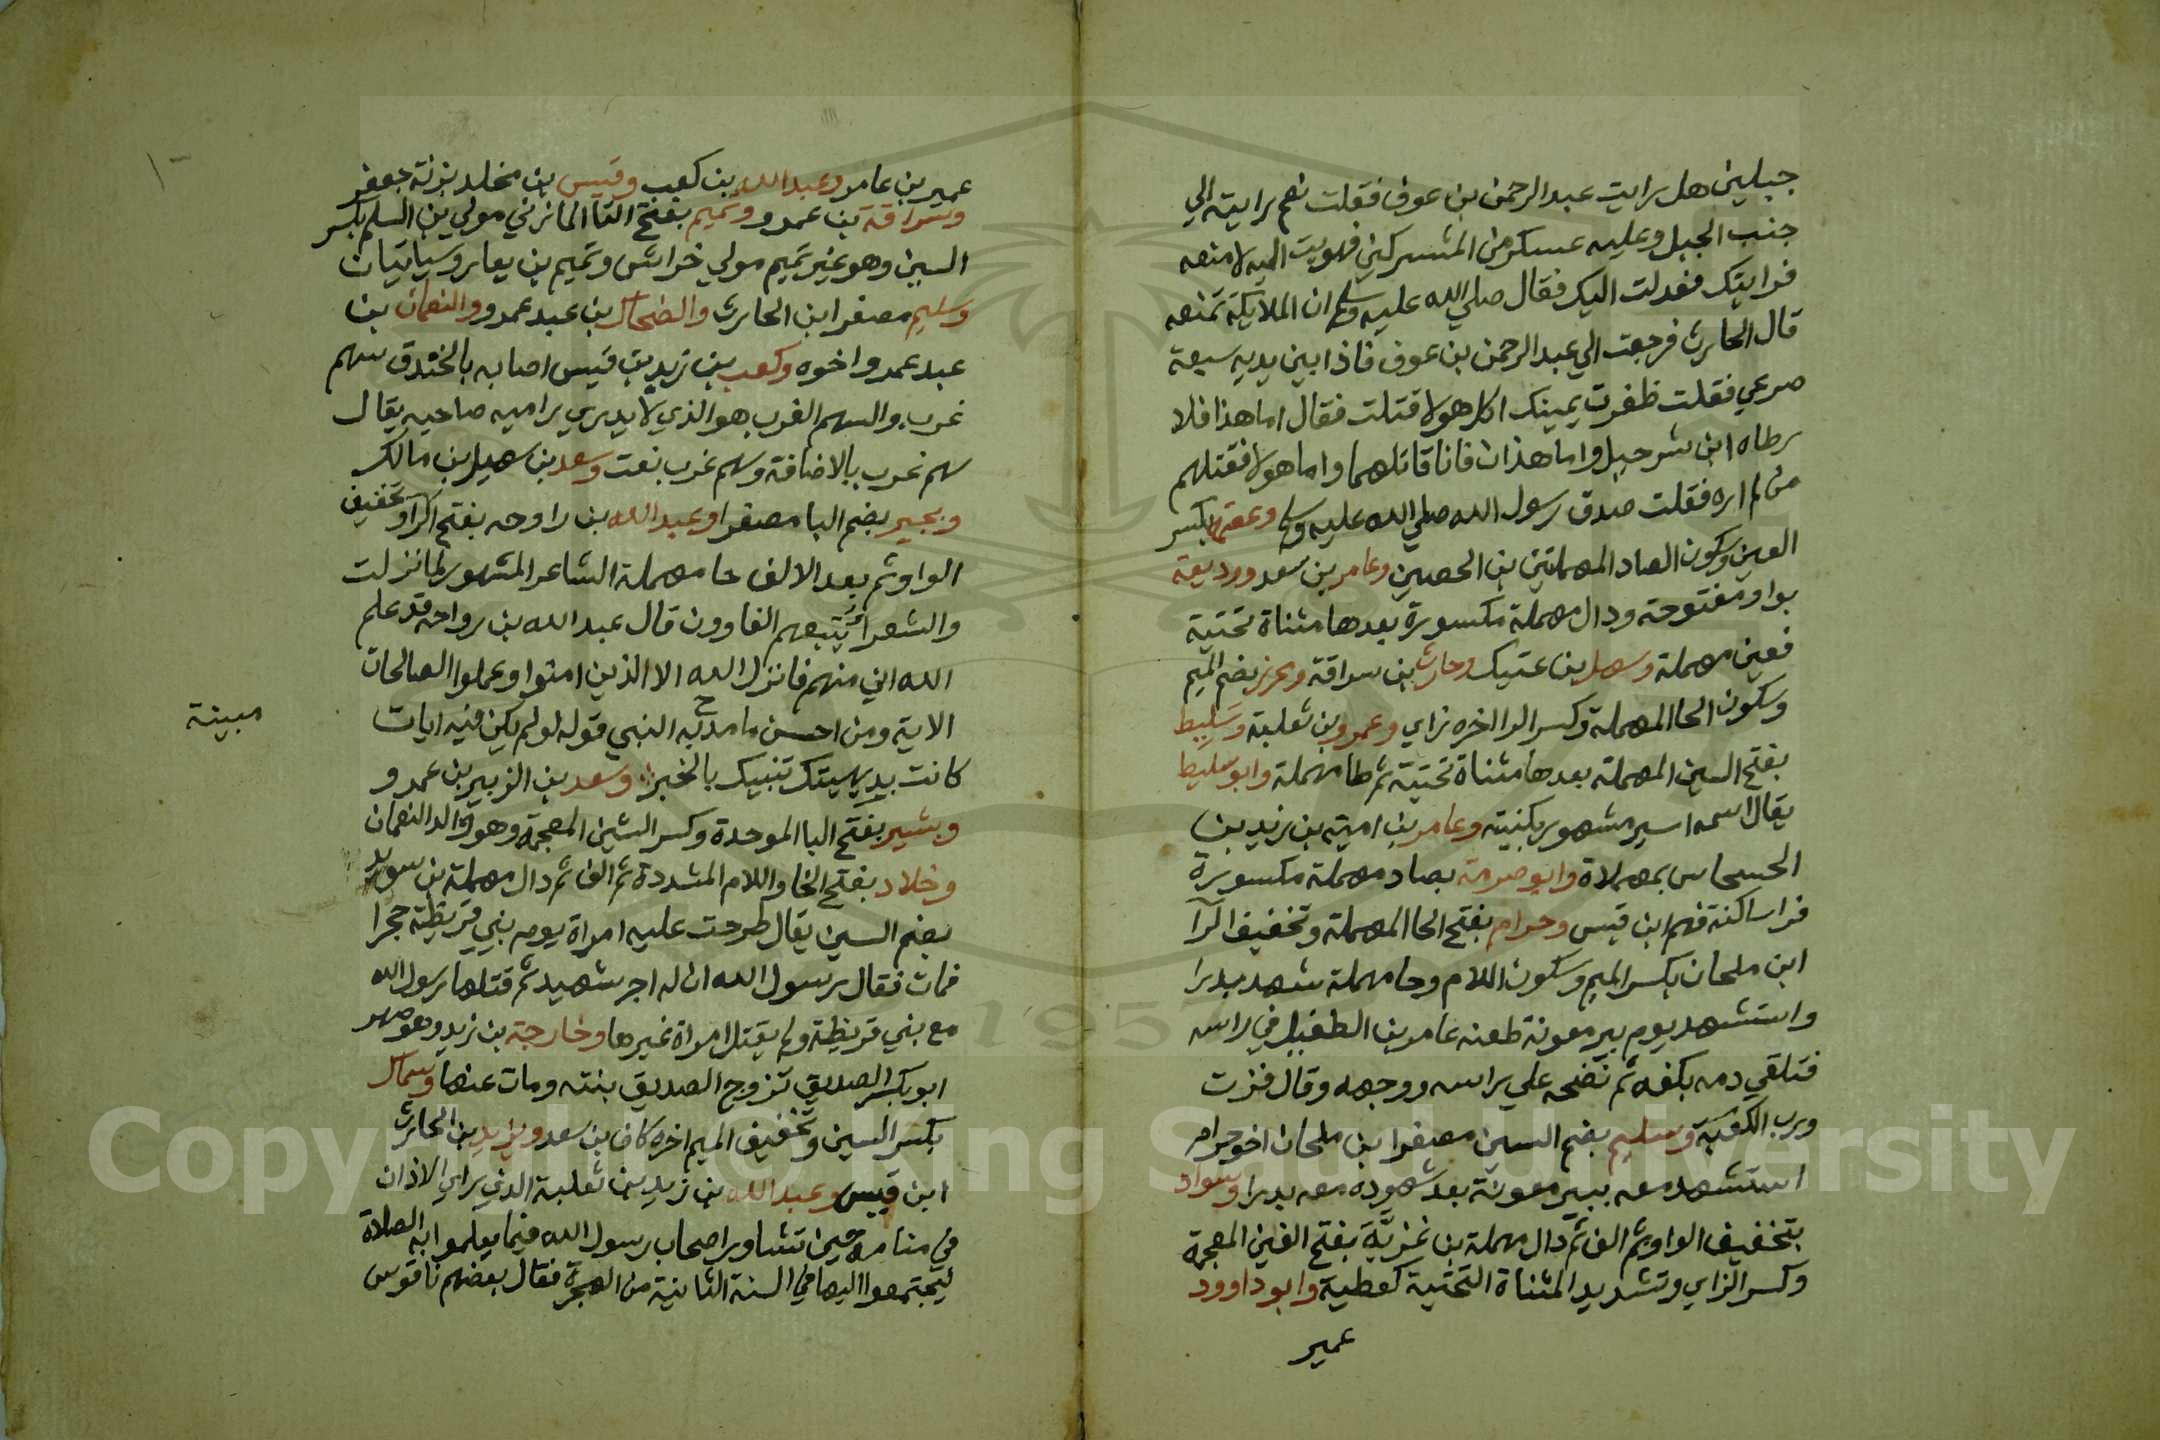 جبلين هل رايت عبد الرحمن بن عوف فقلت نعم رايته الي
جنب الجبل وعليه عسكر من المشركين فهويت اليه لامنعه
فرايتك فعدلت اليك فقال صلي الله عليه وسلم ان الملايكة تمنعه
قال الحارث فرجعت الي عبد الرحمن بن عوف فاذا بين يديه سبعة
صرعي فقلت ظفرت يمينك اكل هولا قتلت فقال اما هذا فلا
رطاه ابن شرحبيل واما هذان فانا قاتلهما واما هولا فقتلهم
من لم اره فقلت صدق رسول الله صلي الله عليه وسلم وعصمة بكسر
العين وسكون الصاد المهملتين بن الحصين وعامر بن سعد ووديعة
بواو مفتوحة ودال مهملة مكسورة بعدها مثناة تحتية
فعين مهملة وسهل بن عتيك وحارث بن سراقة ومحرز بضم الميم
وسكون الحا المهملة وكسر الرا اخره زاي وعمرو بن ثعلبة وسليط
بفتح السين المهملة بعدها مثناة تحتية ثم طا مهملة وابو سليط
يقال اسمه اسير مشهور بكنيته وعامر بن امية بن زيد بن
الحسحاس بمهملاة وابو صرمة بصاد مهملة مكسورة
فرا ساكنة فهم ابن قيس وحرام بفتح الحا المهملة وتخفيف الرآ
ابن ملحان بكسر الميم وسكون اللام وحا مهملة شهد بدرا
واستشهد يوم بير معونة طعنه عامر بن الطفيل في راسه
فتلقي دمه بكفه ثم نضحه علي راسه ووجهه وقال فزت
ورب الكعبة وسليم بضم السين مصغرا بن ملحان اخو حرام
استشهد معه ببير معونة بعد شهوده معه بدرا وسواد
بتخفيف الواو ثم الف ثم دال مهملة بن غزية بفتح الغين المعجمة
وكسر الزاي وتشديد المثناة التحتية كعطية وابو داوود
عمير
عمير بن عامر وعبد الله بن كعب وقيس بن مخلد بزنة جعفر
وسراقة بن عمرو وتميم بفتح التا المازني مولي بن السلم بكسر
السين وهو غير تميم مولي خراش وتميم بن يعار وسياتيان
وسليم مصغر ابن الحارث والضحاك بن عبد عمرو والنعمان بن
عبد عمرو اخوه وكعب بن زيد بن قيس اصابه بالخندق سهم
غرب والسهم الغرب هو الذي لا يدري راميه صاحبه يقال
سهم غرب بالاضافة وسهم غرب نعت وسعد بن سهيل بن مالك
وبجير بضم البا مصغرا وعبد الله بن راوحه بفتح الرآ وتخفيف
الواو ثم بعد الالف حا مهملة الشاعر المشهور لما نزلت
والشعرا يتبعهم الغاوون قال عبد الله بن رواحه قد علم
الله اني منهم فانزل الله الا الذين امنوا وعملوا الصالحات
الاية ومن احسن ما مدح به النبي قوله لو لم يكن فيه ايات
مبينة
كانت بديهيتك تنبيك بالخبر وسعد بن الزبير بن عمرو
وبشير بفتح البا الموحدة وكسر الشين المعجمة وهو والد النعمان
وخلاد بفتح الخا واللام المشددة ثم الف ثم دال مهملة بن سويد
بضم السين يقال طرحت عليه امراة يوم بني قريظة حجرا
فمات فقال رسول الله ان له اجر شهيد ثم قتلها رسول الله
مع بني قريظة ولم يقتل امراة غيرها وخارجة بن زيد وهو صهر
ابو بكر الصديق تزوج الصديق بنته ومات عنها وسماك
بكسر السين وتخفيف الميم اخره كاف بن سعد ويزيد بن الحارث
ابن قيس وعبد الله بن زيد بن ثعلبة الذي راي الاذان
في منامه حين تشاور اصحاب رسول الله فيما يعلموا به الصلاة
ليجتمعوا اليها في السنة الثانية من الهجرة فقال بعضهم ناقوس